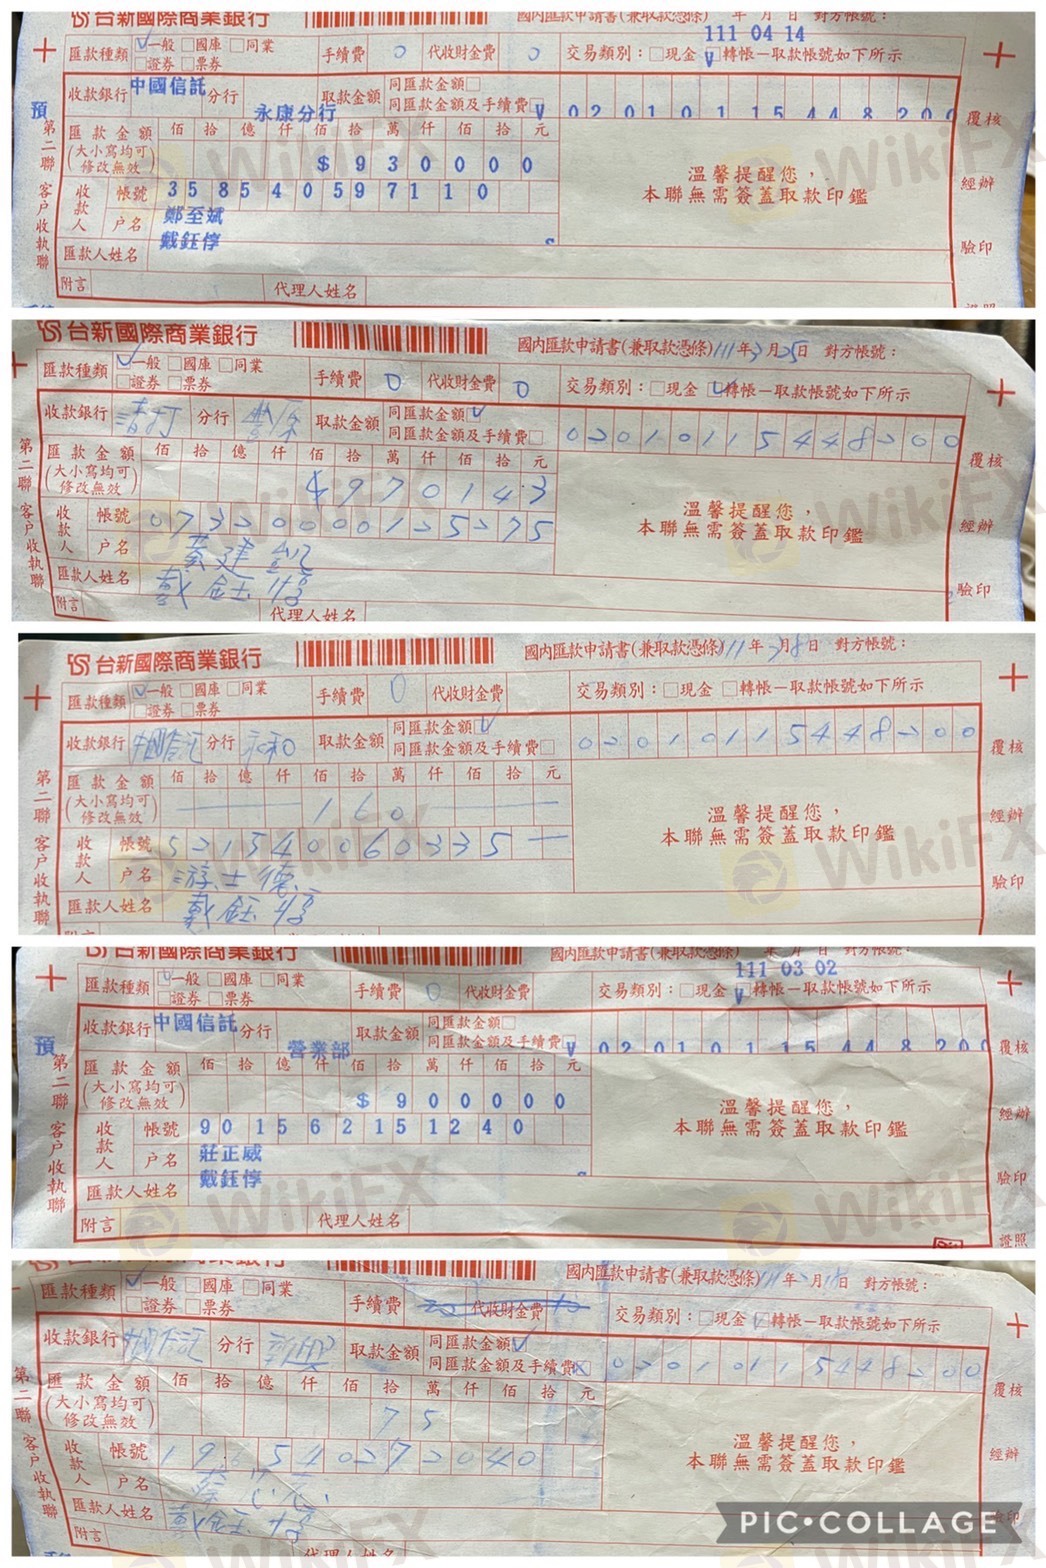 國內匯款申請書(兼取款憑條) 年 月 日 對方帳號：
111 04 14
匯款種類 ✓一般 □國庫 □同業 □證券 □票券 手續費 0 代收財金費 0 交易類別：□現金 □轉帳－取款帳號如下所示
收款銀行 中國信託 分行 永康分行 取款金額 同匯款金額□ 同匯款金額及手續費 V 02010115448200
預
第二聯 客戶收執聯
匯款金額 (大小寫均可 修改無效) 佰 拾 億 仟 佰 拾 萬 仟 佰 拾 元
$930000
收款人 帳號 358540597110
戶名 鄭至斌
匯款人姓名 戴鈺惇
附言 代理人姓名
溫馨提醒您，
本聯無需簽蓋取款印鑑
覆核
經辦
驗印
台新國際商業銀行 國內匯款申請書(兼取款憑條) 111年3月25日 對方帳號：
匯款種類 ✓一般 □國庫 □同業 □證券 □票券 手續費 0 代收財金費 0 交易類別：□現金 □轉帳－取款帳號如下所示
收款銀行 渣打 分行 取款金額 同匯款金額 同匯款金額及手續費□ 02010115448200
第二聯 客戶收執聯
匯款金額 (大小寫均可 修改無效) 佰 拾 億 仟 佰 拾 萬 仟 佰 拾 元
$970143
收款人 帳號 07320000125275
戶名 建
匯款人姓名 戴鈺惇
附言 代理人姓名
溫馨提醒您，
本聯無需簽蓋取款印鑑
覆核
經辦
驗印
台新國際商業銀行 國內匯款申請書(兼取款憑條) 111年 月8日 對方帳號：
匯款種類 ✓一般 □國庫 □同業 □證券 □票券 手續費 0 代收財金費 交易類別：□現金 □轉帳－取款帳號如下所示
收款銀行 中國信託 分行 永和 取款金額 同匯款金額 同匯款金額及手續費□ 02010115448200
第二聯 客戶收執聯
匯款金額 (大小寫均可 修改無效) 佰 拾 億 仟 佰 拾 萬 仟 佰 拾 元
160
收款人 帳號 521540060335
戶名 游士德
匯款人姓名 戴鈺惇
溫馨提醒您，
本聯無需簽蓋取款印鑑
覆核
經辦
驗印
台新國際商業銀行 國內匯款申請書(兼取款憑條) 年 月 日 對方帳號：
111 03 02
匯款種類 一般 □國庫 □同業 □證券 □票券 手續費 0 代收財金費 交易類別：□現金 □轉帳－取款帳號如下所示
收款銀行 中國信託 分行 營業部 取款金額 同匯款金額□ 同匯款金額及手續費 V 02010115448200
預
第二聯 客戶收執聯
匯款金額 (大小寫均可 修改無效) 佰 拾 億 仟 佰 拾 萬 仟 佰 拾 元
$900000
收款人 帳號 901562151240
戶名 莊正威
匯款人姓名 戴鈺惇
附言 代理人姓名
溫馨提醒您，
本聯無需簽蓋取款印鑑
覆核
經辦
驗印
證照
台新國際商業銀行 國內匯款申請書(兼取款憑條) 年 月18日 對方帳號：
匯款種類 ✓一般 □國庫 □同業 □證券 □票券 手續費 代收財金費 交易類別：□現金 □轉帳－取款帳號如下所示
收款銀行 中國信託 分行 取款金額 同匯款金額 同匯款金額及手續費 02010115448200
第二聯 客戶收執聯
匯款金額 (大小寫均可 修改無效) 佰 拾 億 仟 佰 拾 萬 仟 佰 拾 元
75
收款人 帳號
戶名
匯款人姓名 戴鈺惇
附言 代理人姓名
溫馨提醒您，
本聯無需簽蓋取款印鑑
覆核
經辦
驗印
WikiFX
PIC•COLLAGE